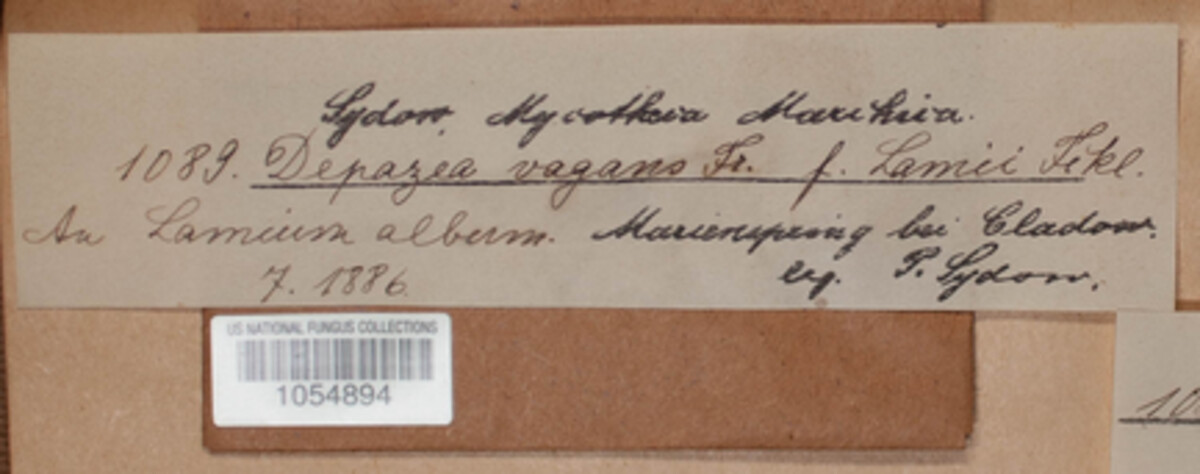 Sydow, Mycotheca Marchica.
1089. Depazea vagans Fr. f. Lamii Fckl.
An Lamium album. Marienspring bei Cladow.
7. 1886 leg. P. Sydow.
US NATIONAL FUNGUS COLLECTIONS
1054894
10